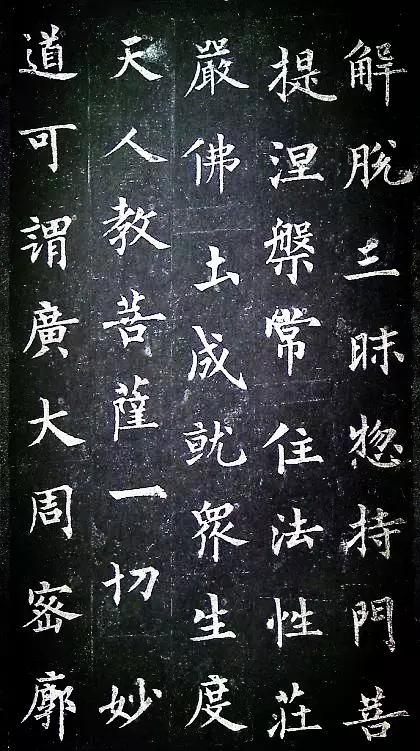 解脫三昧惣持門菩
提涅槃常住法性莊
嚴佛土成就衆生度
天人教菩薩一切妙
道可謂廣大周密廓